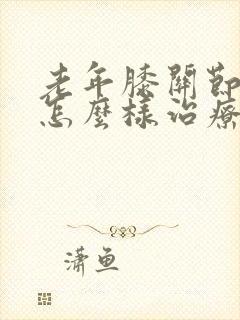 老年膝關節
怎麼樣治療
瀟魚